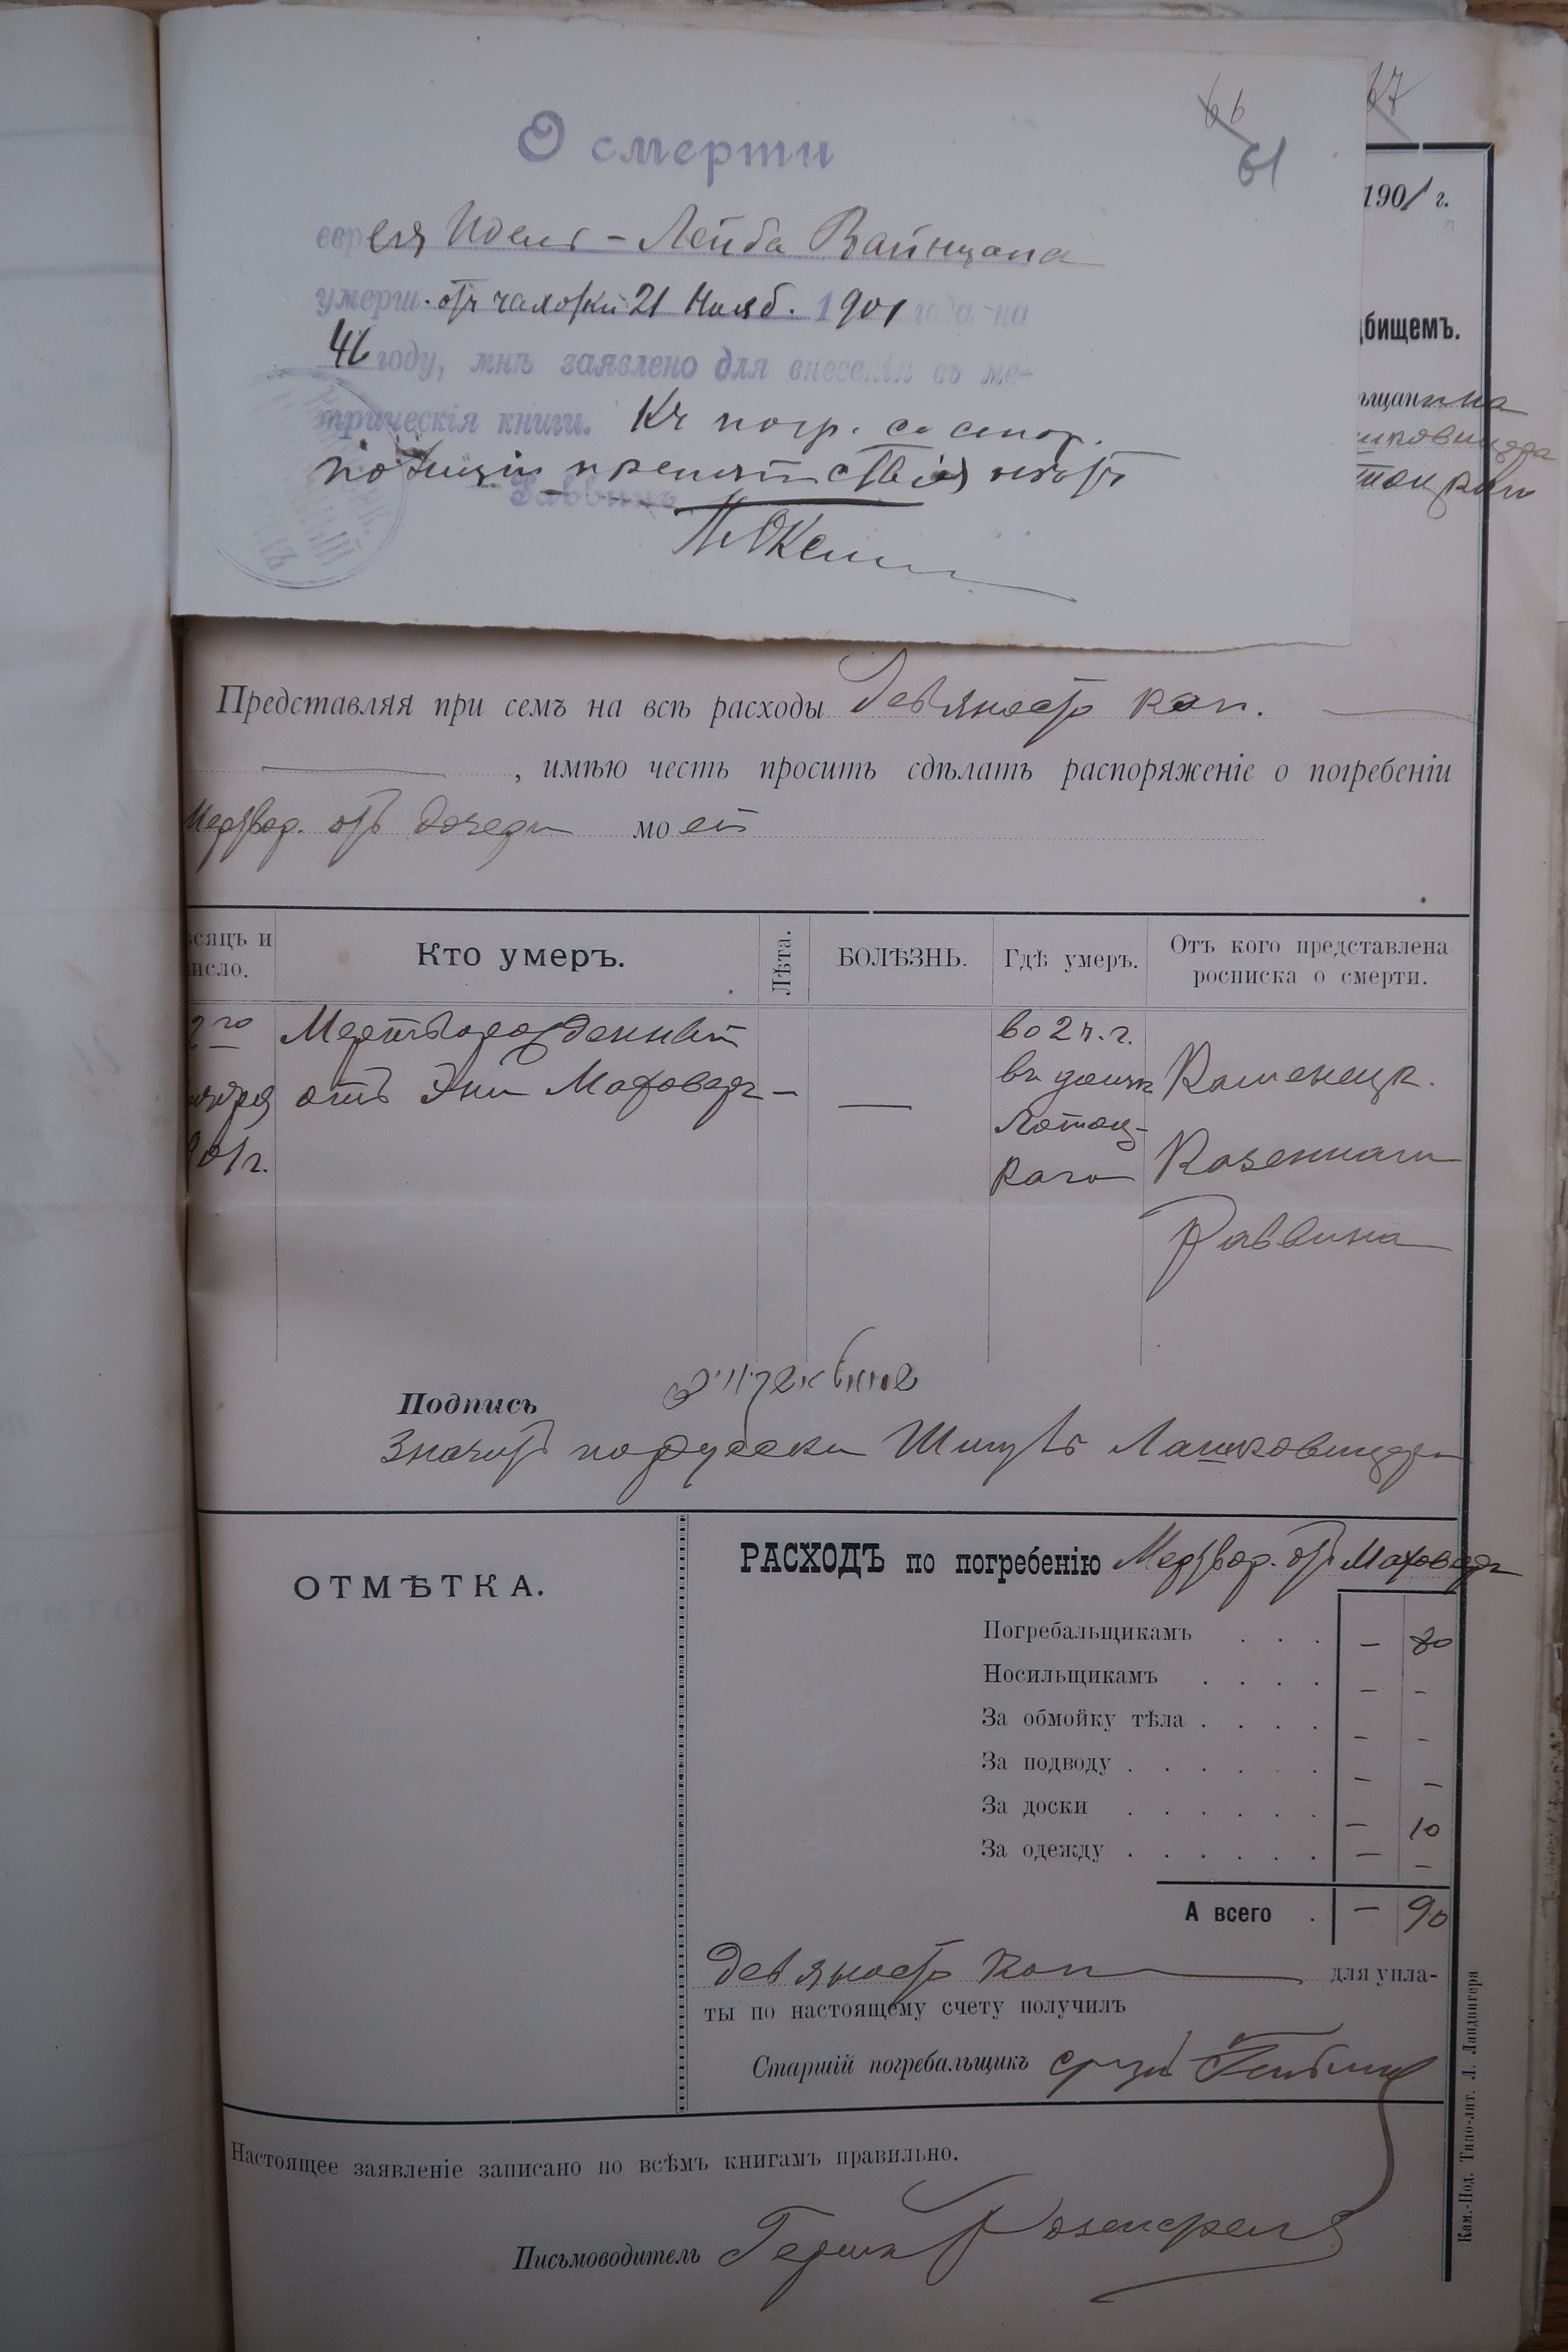 66
61
67
О смерти
еврея Идель-Лейба Вайнцапа
умерш. отъ чахотки 21 Нояб. 1901 года на
46 году, мнѣ заявлено для внесенія въ ме-
трическія книги. Къ погр. со стор.
полиціи препятствія нѣтъ
Раввинъ
1901 г.
дбищемъ.
ѣщанина
Представляя при семъ на всѣ расходы девяносто коп.
, имѣю честь просить сдѣлать распоряженіе о погребеніи
Мертвор. отъ дочери моей
ѣсяцъ и
исло.
Кто умеръ.
Лѣта.
БОЛѢЗНЬ.
Гдѣ умеръ.
Отъ кого представлена
росписка о смерти.
2го
Мертворожденный
во 2 ч. г.
отъ Эни Маховеръ
—
—
въ домѣ
Каменецк.
901 г.
Потоц-
каго
Казеннаго
Раввина
Подпись
Значитъ по русски Лашковицеръ
ОТМѢТКА.
РАСХОДЪ по погребенію Мертвор. отъ Маховеръ
Погребальщикамъ . . . — 80
Носильщикамъ . . . . — -
За обмойку тѣла . . . . — -
За подводу . . . . . . — —
За доски . . . . . . — 10
За одежду . . . . . . — —
А всего . — 90
девяносто коп для упла-
ты по настоящему счету получилъ
Старшій погребальщикъ
Настоящее заявленіе записано по всѣмъ книгамъ правильно.
Письмоводитель Герш
Кам.-Под. Типо-лит. Л. Ландвигера